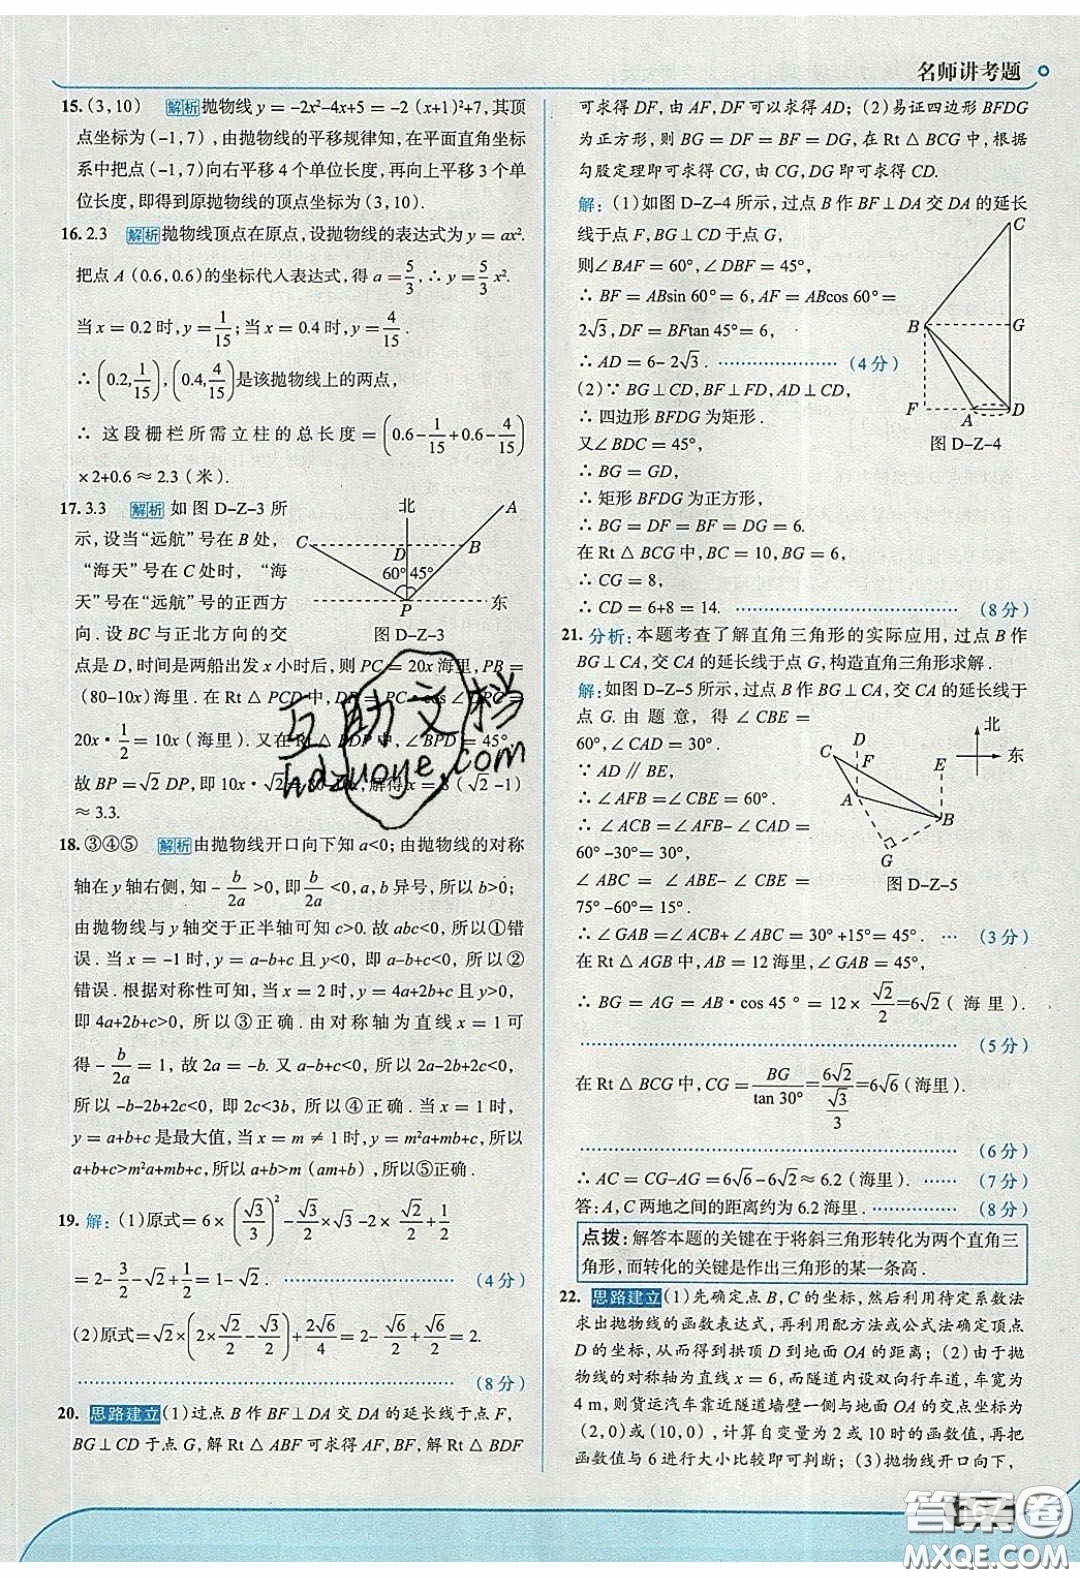 名师讲考题
15. (3,10) 解析 抛物线 y = -2x²-4x+5 = -2 (x+1)²+7, 其顶
点坐标为 (-1,7), 由抛物线的平移规律知, 在平面直角坐标
系中把点 (-1,7) 向右平移 4 个单位长度, 再向上平移 3 个单
位长度, 即得到原抛物线的顶点坐标为 (3,10).
16. 2.3 解析 抛物线顶点在原点, 设抛物线的表达式为 y = ax².
把点 A (0.6,0.6) 的坐标代入表达式, 得 a = 5/3, ∴ y = 5/3 x².
当 x = 0.2 时, y = 1/15; 当 x = 0.4 时, y = 4/15.
∴ (0.2, 1/15), (0.4, 4/15) 是该抛物线上的两点,
∴ 这段栅栏所需立柱的总长度 = (0.6-1/15+0.6-4/15)
×2+0.6 ≈ 2.3 (米).
17. 3.3 解析 如图 D-Z-3 所
示, 设当“远航”号在 B 处,
“海天”号在 C 处时, “海
天”号在“远航”号的正西方
向. 设 BC 与正北方向的交
北
A
C
D
B
60° 45°
P
东
图 D-Z-3
点是 D, 时间是两船出发 x 小时后, 则 PC = 20x 海里, PB =
(80-10x) 海里. 在 Rt △ PCD 中, DP = PC·cos ∠ DPC =
20x· 1/2 = 10x (海里). 又在 Rt △ BDP 中, ∠ BPD = 45°,
故 BP = √2 DP, 即 10x·√2 = 80-10x, 解得 x = 8 (√2 -1)
≈ 3.3.
18. ③④⑤ 解析 由抛物线开口向下知 a<0; 由抛物线的对称
轴在 y 轴右侧, 知 - b/2a >0, 即 b/2a <0, a, b 异号, 所以 b>0;
由抛物线与 y 轴交于正半轴可知 c>0. 故 abc<0, 所以①错
误. 当 x = -1 时, y = a-b+c 且 y<0, 即 a-b+c<0, 所以②
错误. 根据对称性可知, 当 x = 2 时, y = 4a+2b+c, 且 y>0,
即 4a+2b+c>0, 所以③正确. 由对称轴为直线 x = 1 可
得 - b/2a = 1, 故 2a = -b. 又 a-b+c<0, 故 2a-2b+2c<0,
所以 -b-2b+2c<0, 即 2c<3b, 所以④正确. 当 x = 1 时,
y = a+b+c 是最大值, 当 x = m ≠ 1 时, y = m²a+mb+c, 所以
a+b+c>m²a+mb+c, 即 a+b>m (am+b), 所以⑤正确.
19. 解: (1) 原式 = 6× (√3/3)² - √3/2 ×√3 -2× √2/2 + 1/2
= 2- 3/2 -√2 + 1/2 = 1-√2. (4 分)
(2) 原式 = √2×(2×√2/2 - √3/2)+ 2√6/4 = 2- √6/2 + √6/2 = 2.
(8 分)
20. 思路建立 (1) 过点 B 作 BF⊥DA 交 DA 的延长线于点 F,
BG⊥CD 于点 G, 解 Rt △ ABF 可求得 AF, BF, 解 Rt △ BDF
可求得 DF, 由 AF, DF 可以求得 AD; (2) 易证四边形 BFDG
为正方形, 则 BG = DF = BF = DG, 在 Rt △ BCG 中, 根据
勾股定理即可求得 CG, 由 CG, DG 即可求得 CD.
解: (1) 如图 D-Z-4 所示, 过点 B 作 BF⊥DA 交 DA 的延长
线于点 F, BG⊥CD 于点 G,
则∠ BAF = 60°, ∠ DBF = 45°,
∴ BF = ABsin 60° = 6, AF = ABcos 60°=
2√3, DF = BFtan 45°= 6,
∴ AD = 6- 2√3. (4 分)
(2) ∵ BG⊥CD, BF⊥FD, AD⊥CD,
∴ 四边形 BFDG 为矩形.
又∠ BDC = 45°,
∴ BG = GD,
∴ 矩形 BFDG 为正方形,
∴ BG = DF = BF = DG = 6.
在 Rt △ BCG 中, BC = 10, BG = 6,
∴ CG = 8,
∴ CD = 6+8 = 14. (8 分)
C
B
G
F
A
D
图 D-Z-4
21. 分析: 本题考查了解直角三角形的实际应用, 过点 B 作
BG⊥CA, 交 CA 的延长线于点 G, 构造直角三角形求解.
解: 如图 D-Z-5 所示, 过点 B 作 BG⊥CA, 交 CA 的延长线于
点 G. 由题意, 得 ∠ CBE =
60°, ∠ CAD = 30°.
∵ AD ∥ BE,
∴ ∠ AFB = ∠ CBE = 60°.
∴ ∠ ACB = ∠ AFB- ∠ CAD =
60° -30° = 30°.
∠ ABC = ∠ ABE- ∠ CBE =
75° -60° = 15°.
北
东
D
C
F
E
A
B
G
图 D-Z-5
∴ ∠ GAB = ∠ ACB+ ∠ ABC = 30° +15°= 45°. (3 分)
在 Rt △ AGB 中, AB = 12 海里, ∠ GAB = 45°,
∴ BG = AG = AB·cos 45° = 12× √2/2 =6√2 (海里).
(5 分)
在 Rt △ BCG 中, CG = BG/tan 30° = 6√2/(√3/3) =6√6 (海里).
(6 分)
∴ AC = CG-AG = 6√6 -6√2 ≈ 6.2 (海里). (7 分)
答: A, C 两地之间的距离约为 6.2 海里. (8 分)
点拨: 解答本题的关键在于将斜三角形转化为两个直角三
角形, 而转化的关键是作出三角形的某一条高.
22. 思路建立 (1) 先确定点 B, C 的坐标, 然后利用待定系数法
求出抛物线的函数表达式, 再利用配方法或公式法确定顶点
D 的坐标, 从而得到拱顶 D 到地面 OA 的距离; (2) 由于抛
物线的对称轴为直线 x = 6, 而隧道内设双向行车道, 车宽为
4 m, 则货运汽车靠近隧道墙壁一侧与地面 OA 的交点坐标为
(2,0) 或 (10,0), 计算自变量为 2 或 10 时的函数值, 再把
函数值与 6 进行大小比较即可判断; (3) 抛物线开口向下,
互助文档
hdzuoye.com
答案圈
MXQE.COM